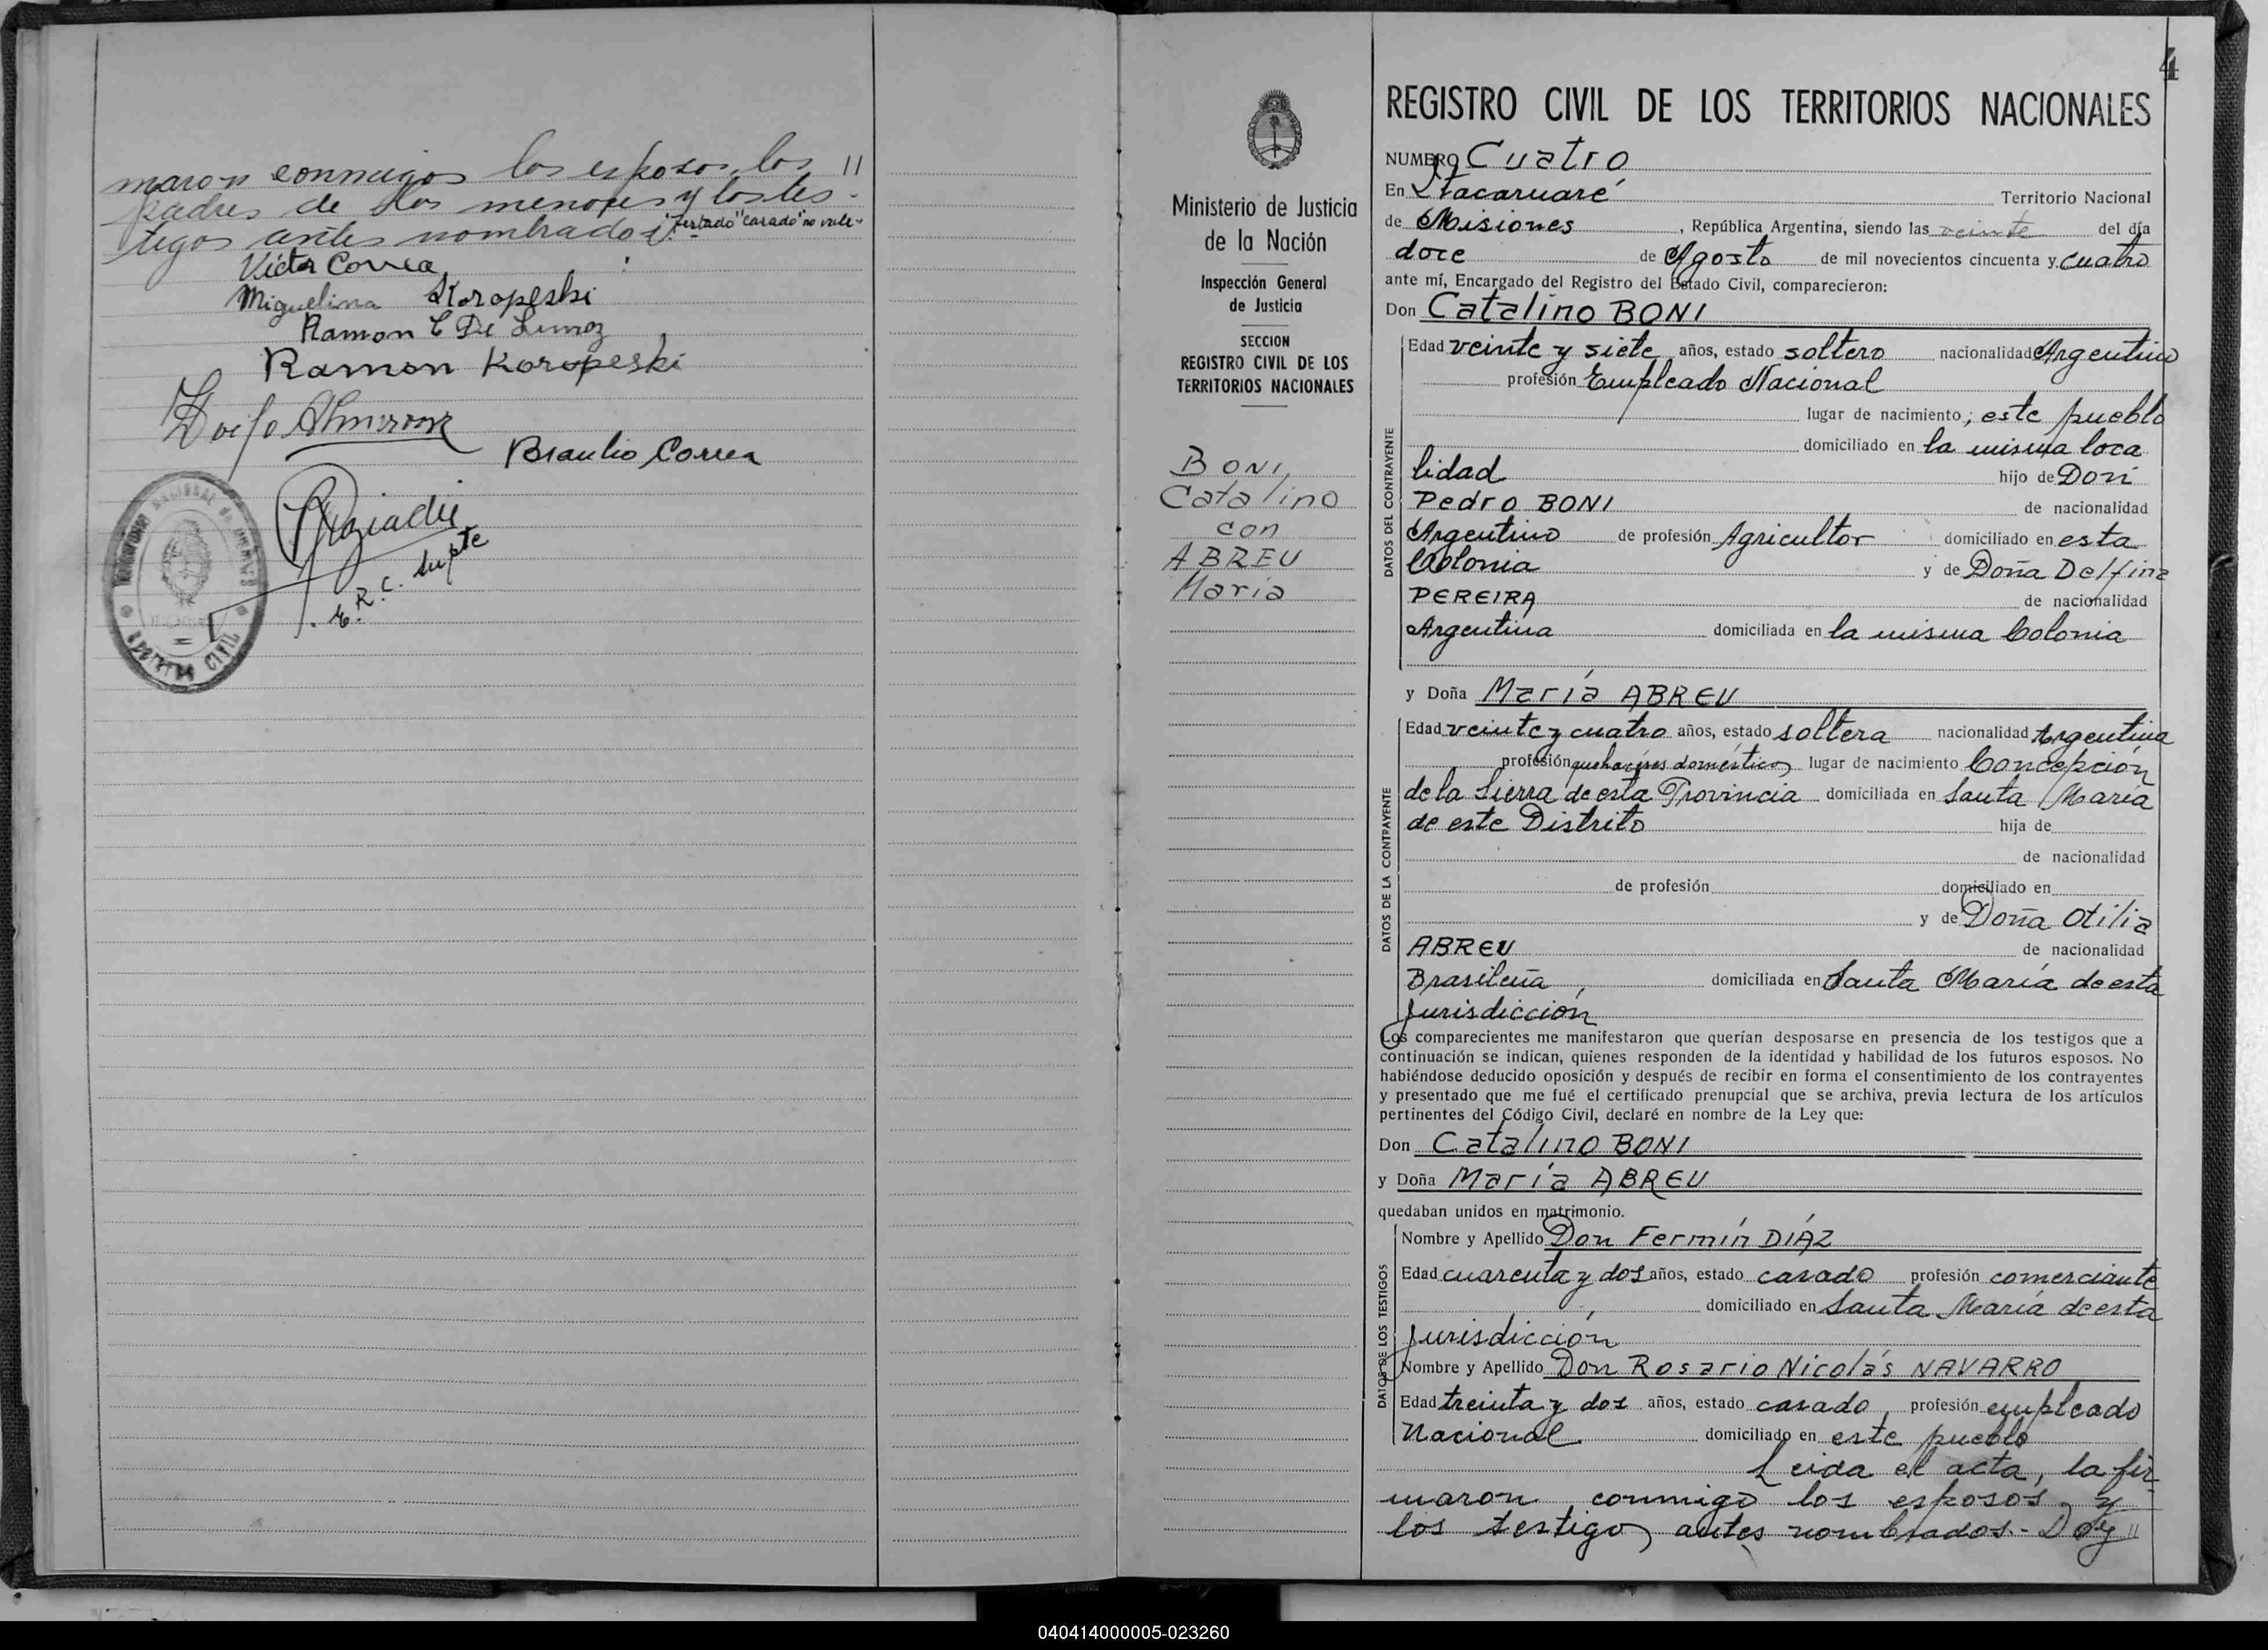 maron conmigos los esposos, los //
padres de los menores y los tes-
tigos antes nombrados. "testado "casado" no vale-
Victor Correa
Miguelina Koropeski
Ramon C De Limoz
Ramon Koropeski
Braulio Correa
E. R. C. Supte
REGISTRO CIVIL
4
Ministerio de Justicia
de la Nación
Inspección General
de Justicia
SECCION
REGISTRO CIVIL DE LOS
TERRITORIOS NACIONALES
BONI,
Catalino
con
ABREU
María
REGISTRO CIVIL DE LOS TERRITORIOS NACIONALES
NUMERO Cuatro
En Itacaruaré Territorio Nacional
de Misiones, República Argentina, siendo las veinte del día
doce de Agosto de mil novecientos cincuenta y cuatro
ante mí, Encargado del Registro del Estado Civil, comparecieron:
Don Catalino BONI
DATOS DEL CONTRAYENTE
Edad veinte y siete años, estado soltero nacionalidad Argentino
profesión Empleado Nacional
lugar de nacimiento; este pueblo
domiciliado en la misma loca
lidad hijo de Don
Pedro BONI de nacionalidad
Argentino de profesión Agricultor domiciliado en esta
Colonia y de Doña Delfina
PEREIRA de nacionalidad
Argentina domiciliada en la misma Colonia
y Doña María ABREU
DATOS DE LA CONTRAYENTE
Edad veinte y cuatro años, estado soltera nacionalidad Argentina
profesión quehaceres domésticos lugar de nacimiento Concepción
de la Sierra de esta Provincia domiciliada en Santa María
de este Distrito hija de
de nacionalidad
de profesión domiciliado en
y de Doña Otilia
ABREU de nacionalidad
Brasileña, domiciliada en Santa María de esta
Jurisdicción
Los comparecientes me manifestaron que querían desposarse en presencia de los testigos que a
continuación se indican, quienes responden de la identidad y habilidad de los futuros esposos. No
habiéndose deducido oposición y después de recibir en forma el consentimiento de los contrayentes
y presentado que me fué el certificado prenupcial que se archiva, previa lectura de los artículos
pertinentes del Código Civil, declaré en nombre de la Ley que:
Don Catalino BONI
y Doña María ABREU
quedaban unidos en matrimonio.
DATOS DE LOS TESTIGOS
Nombre y Apellido Don Fermín DÍAZ
Edad cuarenta y dos años, estado casado profesión comerciante
domiciliado en Santa María de esta
Jurisdicción
Nombre y Apellido Don Rosario Nicolás NAVARRO
Edad treinta y dos años, estado casado, profesión empleado
Nacional domiciliado en este pueblo
Leida el acta, la fir
maron conmigo los esposos, y
los testigos antes nombrados.- Doy //
040414000005-023260